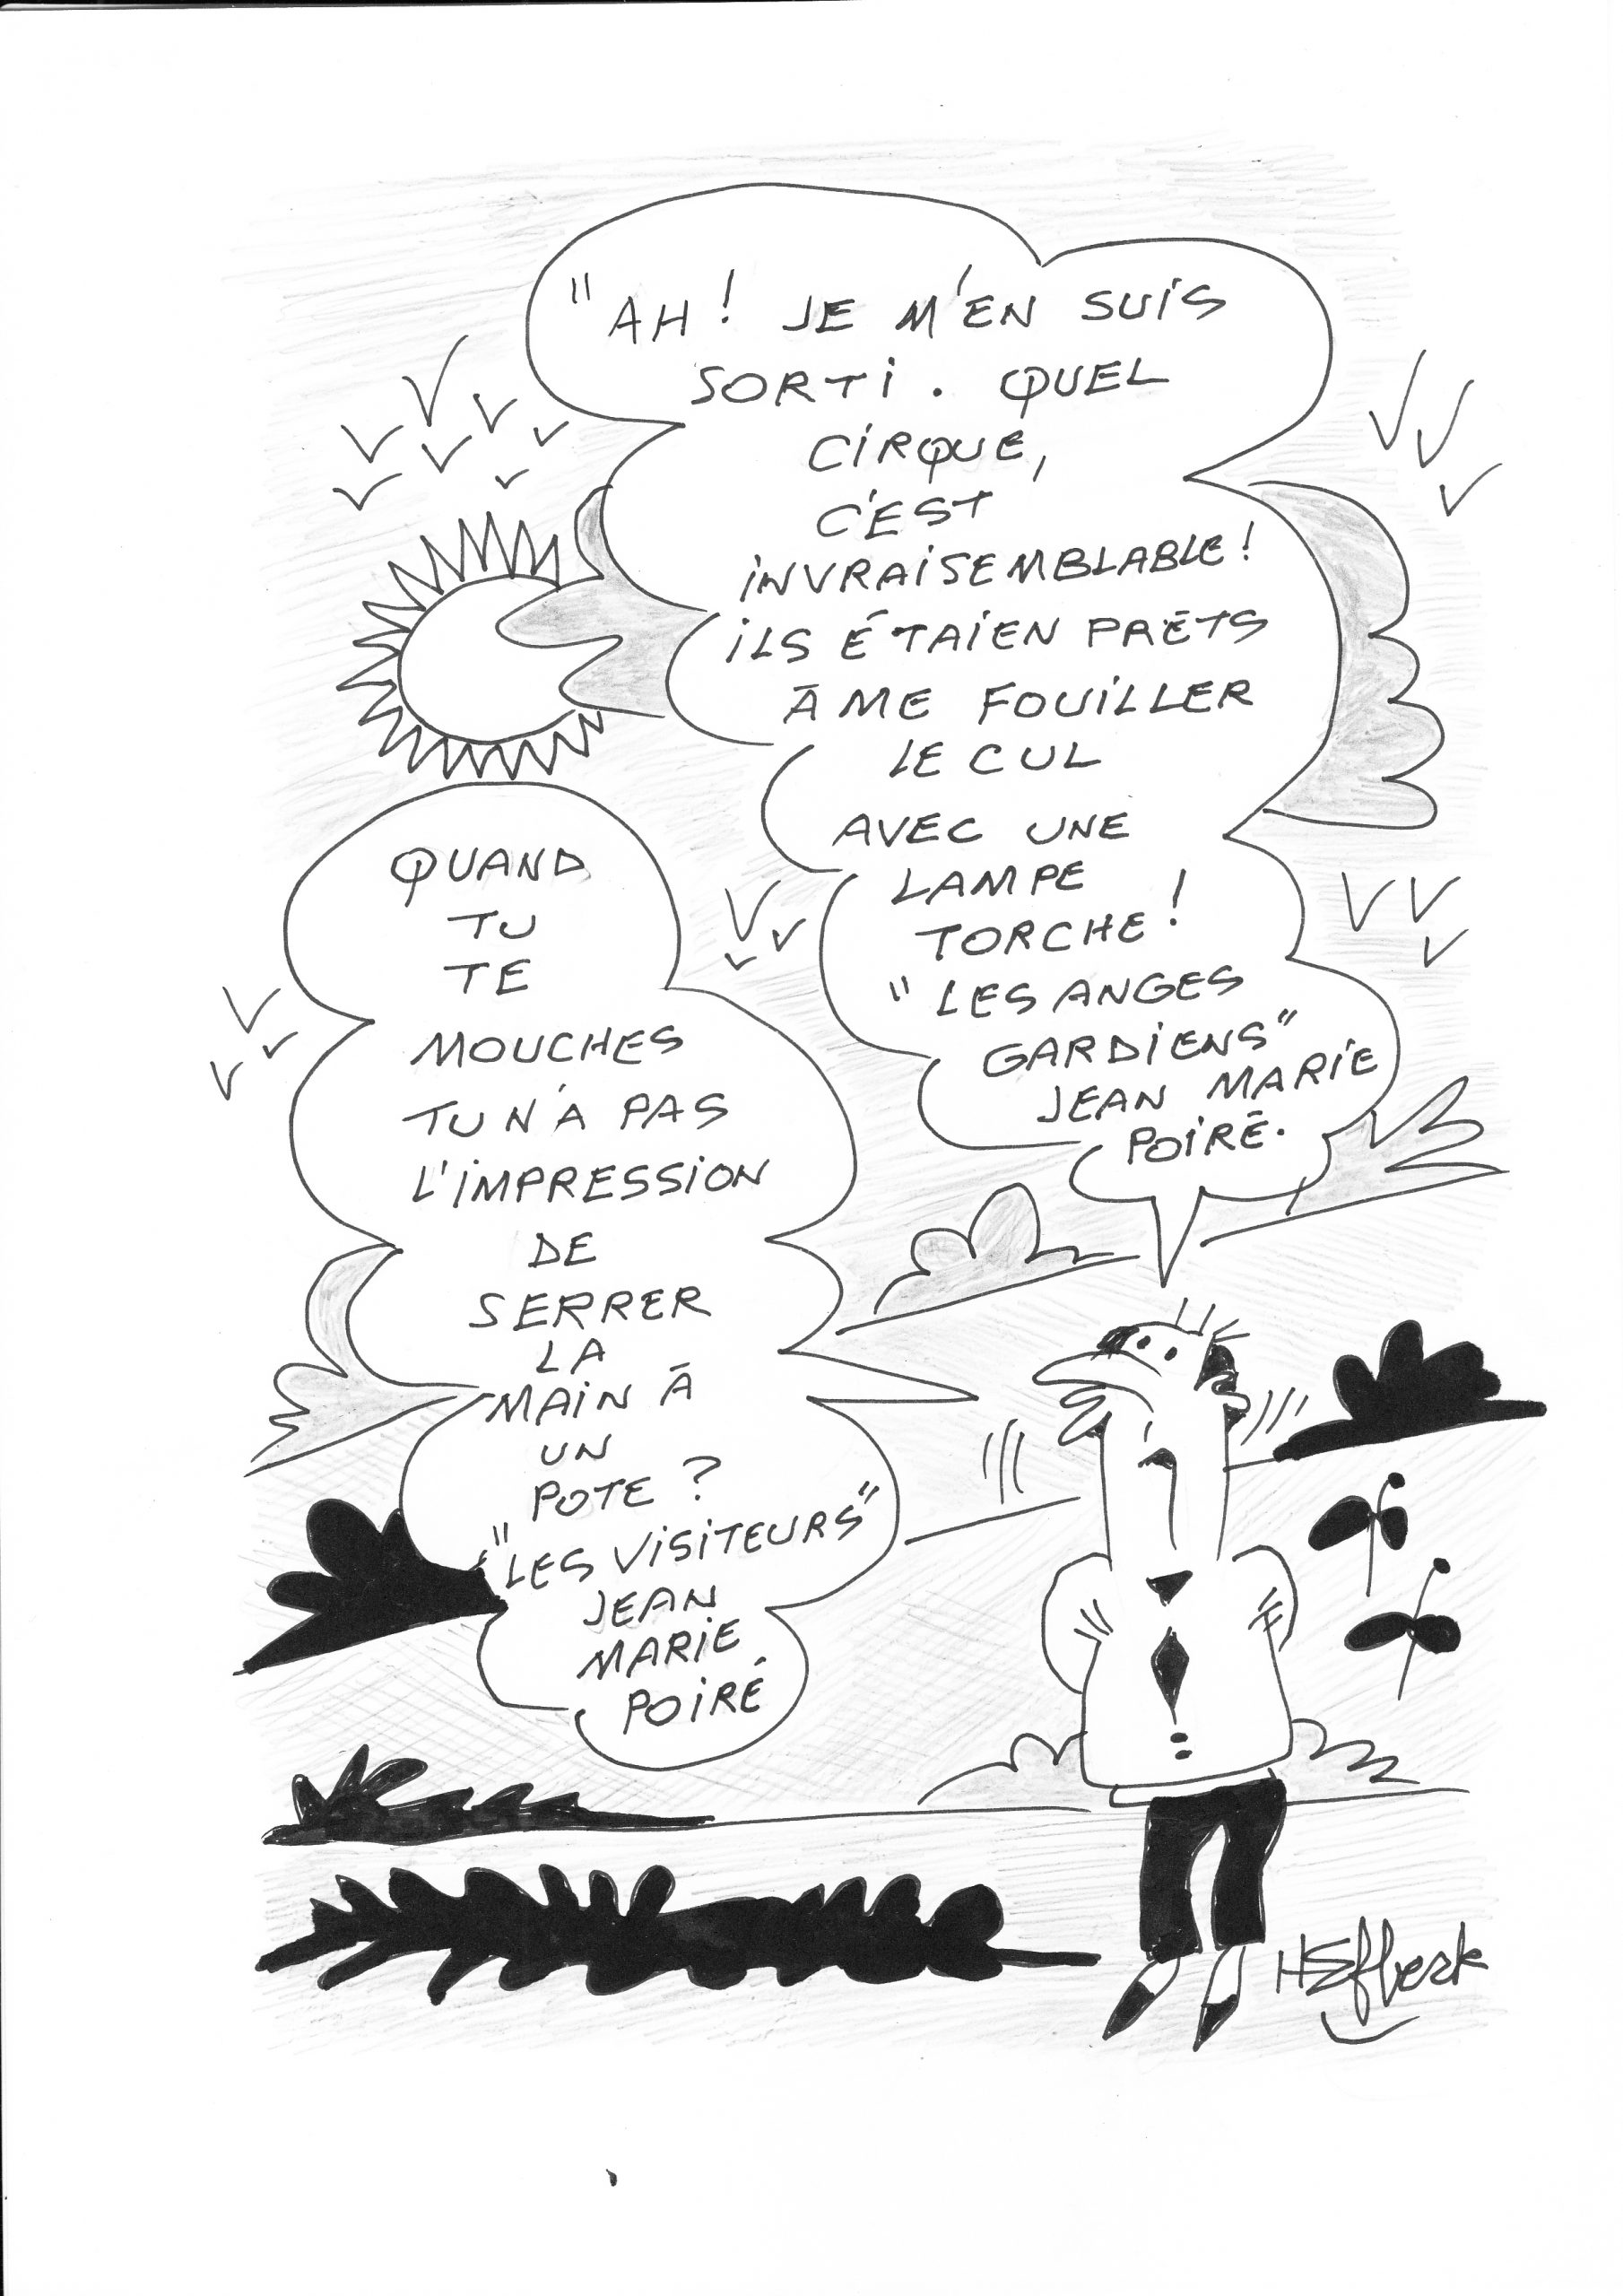 "AH! JE M'EN SUIS
SORTI. QUEL
CIRQUE,
C'EST
INVRAISEMBLABLE!
ILS ÉTAIEN PRÊTS
À ME FOUILLER
LE CUL
AVEC UNE
LAMPE
TORCHE!
"LES ANGES
GARDIENS"
JEAN MARIE
POIRÉ.
QUAND
TU
TE
MOUCHES
TU N'A PAS
L'IMPRESSION
DE
SERRER
LA
MAIN À
UN
POTE?
"LES VISITEURS"
JEAN
MARIE
POIRÉ